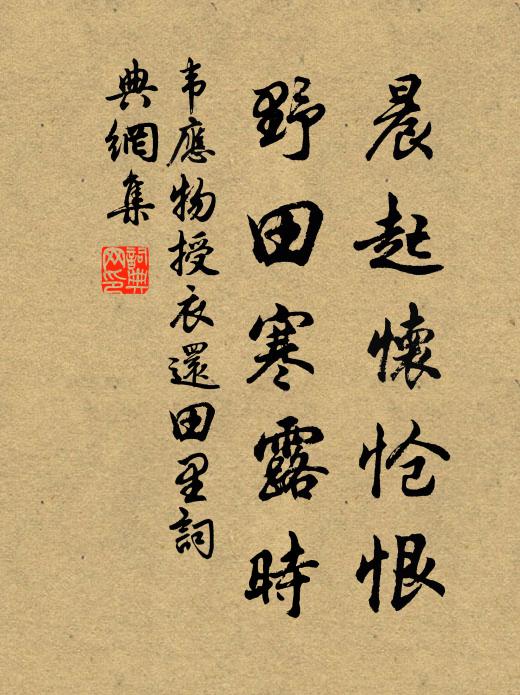 晨起懷怆恨
野田寒露時
韦應物授衣還田里詞
典網集
詞典
网印